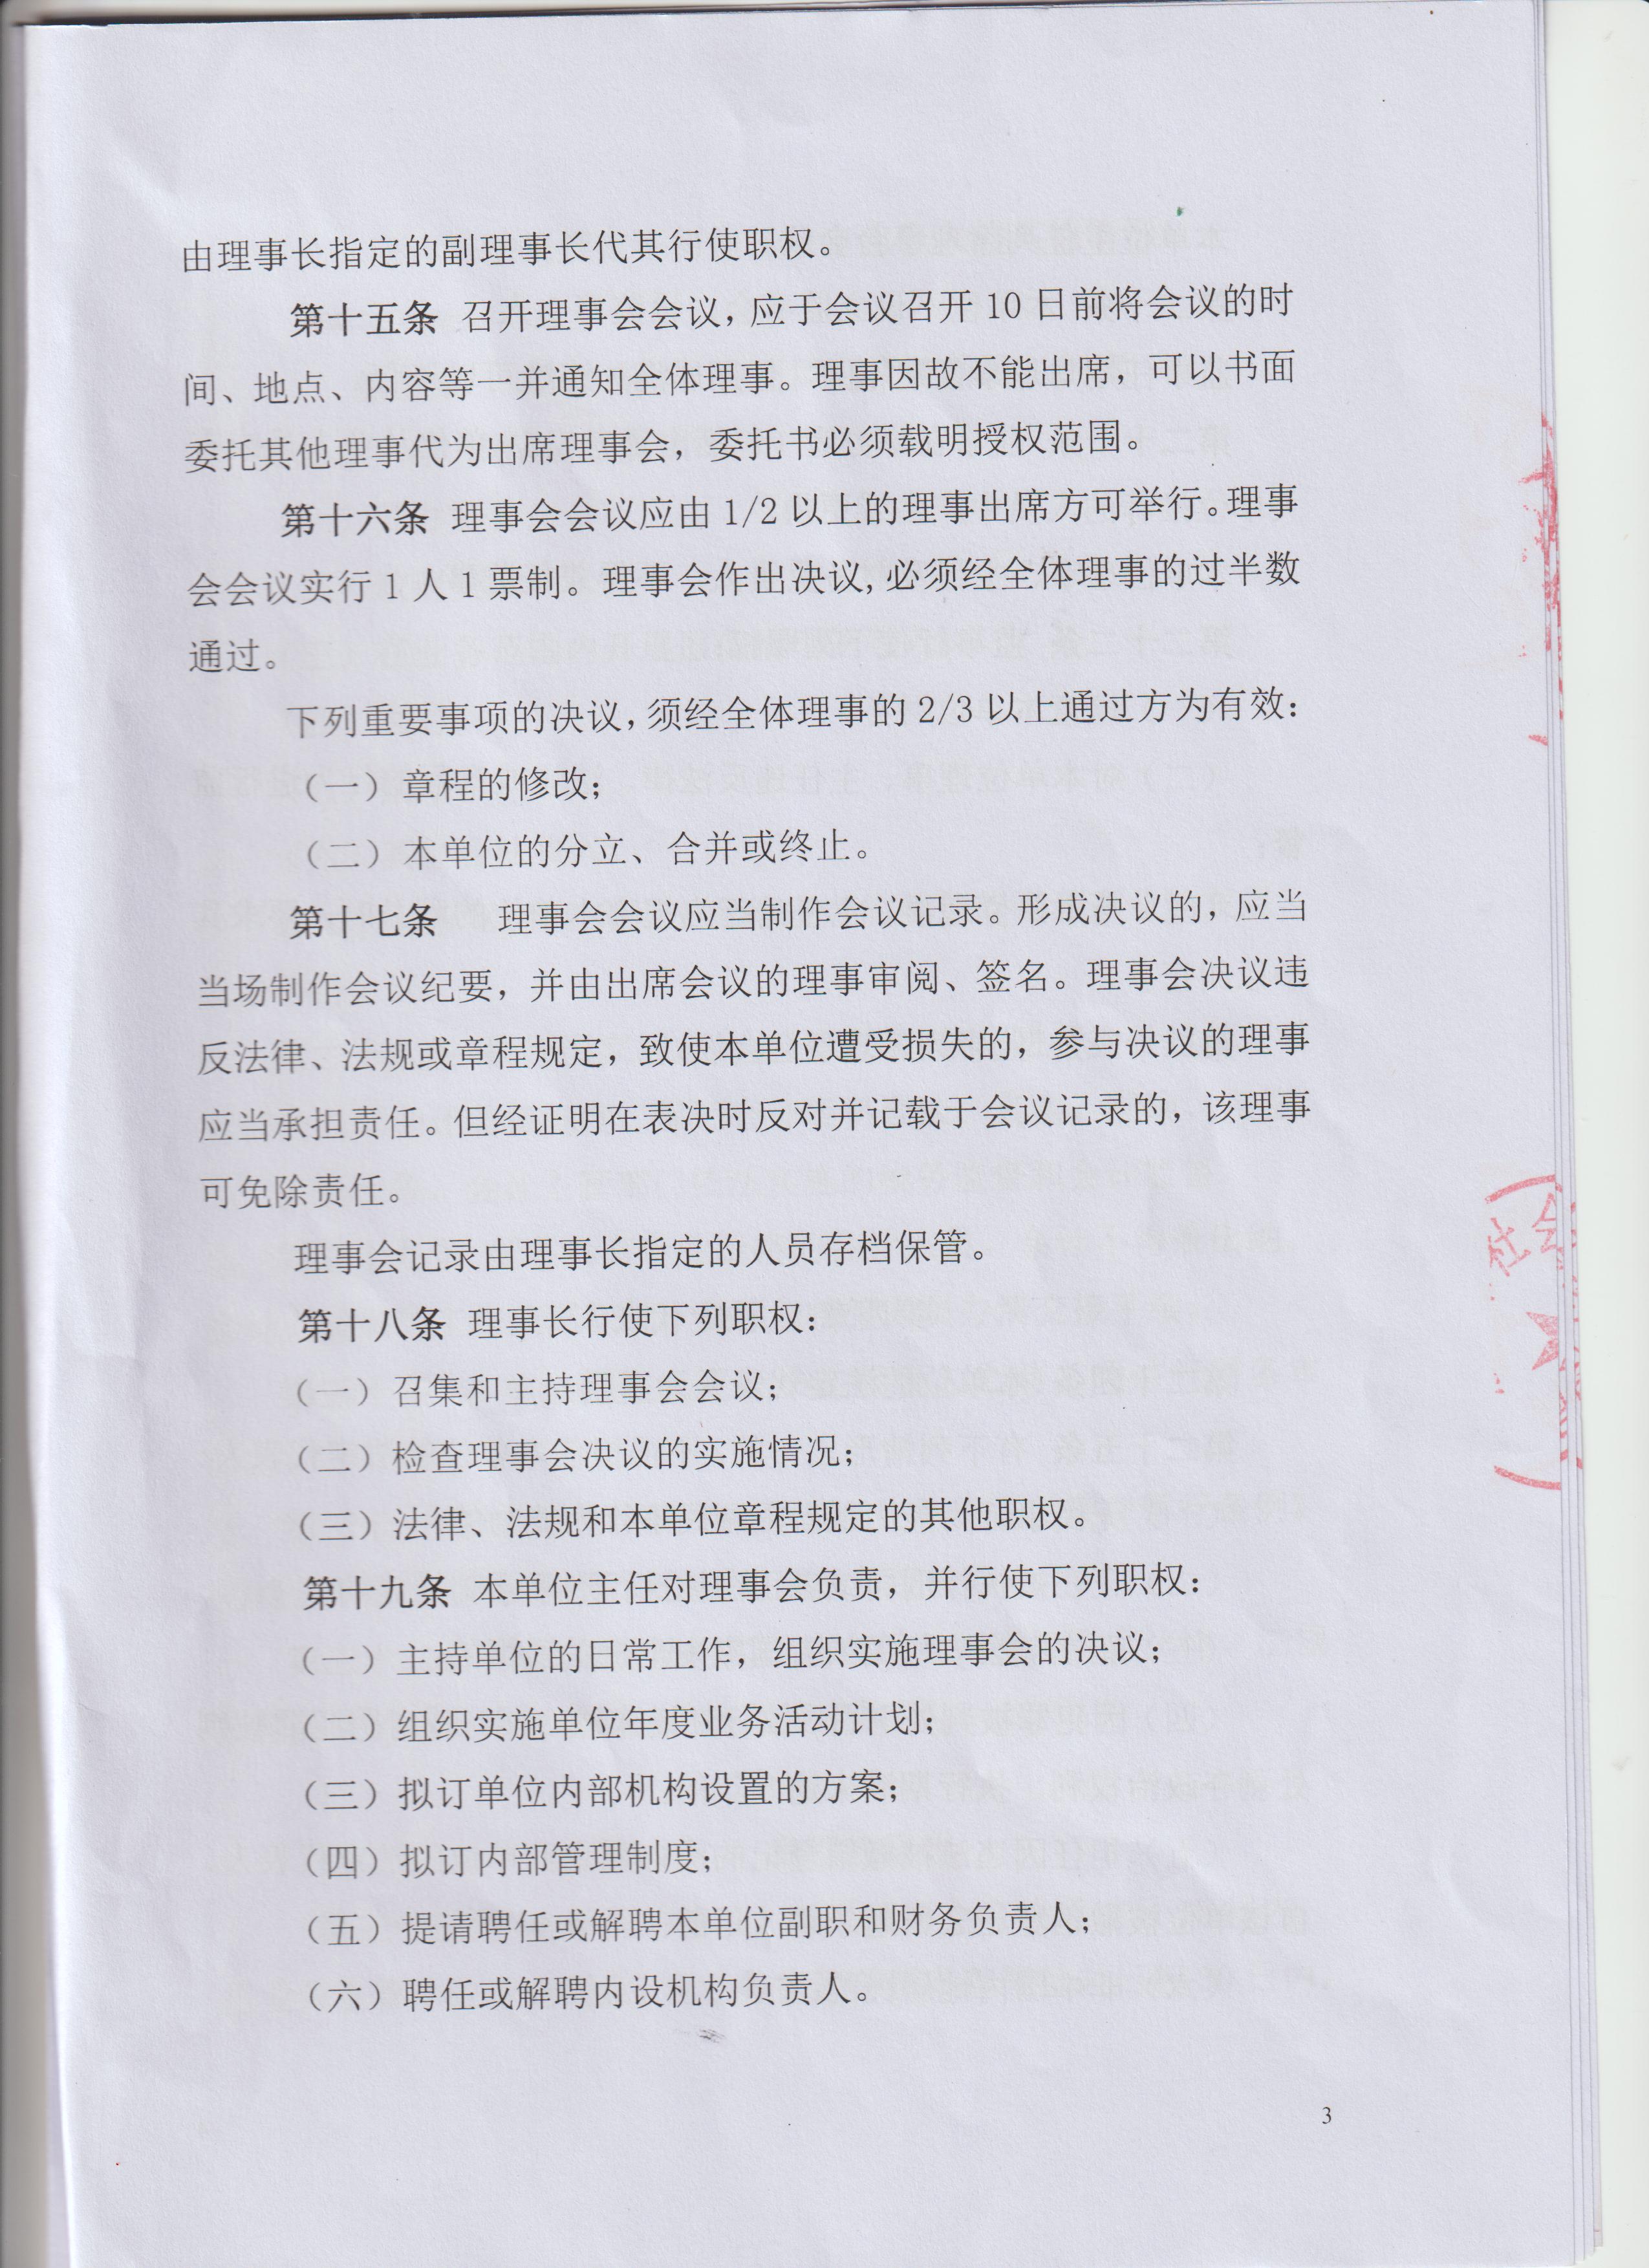 由理事长指定的副理事长代其行使职权。
第十五条 召开理事会会议，应于会议召开 10 日前将会议的时
间、地点、内容等一并通知全体理事。理事因故不能出席，可以书面
委托其他理事代为出席理事会，委托书必须载明授权范围。
第十六条 理事会会议应由 1/2 以上的理事出席方可举行。理事
会会议实行 1 人 1 票制。理事会作出决议,必须经全体理事的过半数
通过。
下列重要事项的决议,须经全体理事的 2/3 以上通过方为有效：
（一）章程的修改；
（二）本单位的分立、合并或终止。
第十七条 理事会会议应当制作会议记录。形成决议的，应当
当场制作会议纪要，并由出席会议的理事审阅、签名。理事会决议违
反法律、法规或章程规定，致使本单位遭受损失的，参与决议的理事
应当承担责任。但经证明在表决时反对并记载于会议记录的，该理事
可免除责任。
理事会记录由理事长指定的人员存档保管。
第十八条 理事长行使下列职权：
（一）召集和主持理事会会议；
（二）检查理事会决议的实施情况；
（三）法律、法规和本单位章程规定的其他职权。
第十九条 本单位主任对理事会负责，并行使下列职权：
（一）主持单位的日常工作，组织实施理事会的决议；
（二）组织实施单位年度业务活动计划；
（三）拟订单位内部机构设置的方案；
（四）拟订内部管理制度；
（五）提请聘任或解聘本单位副职和财务负责人；
（六）聘任或解聘内设机构负责人。
社会
3